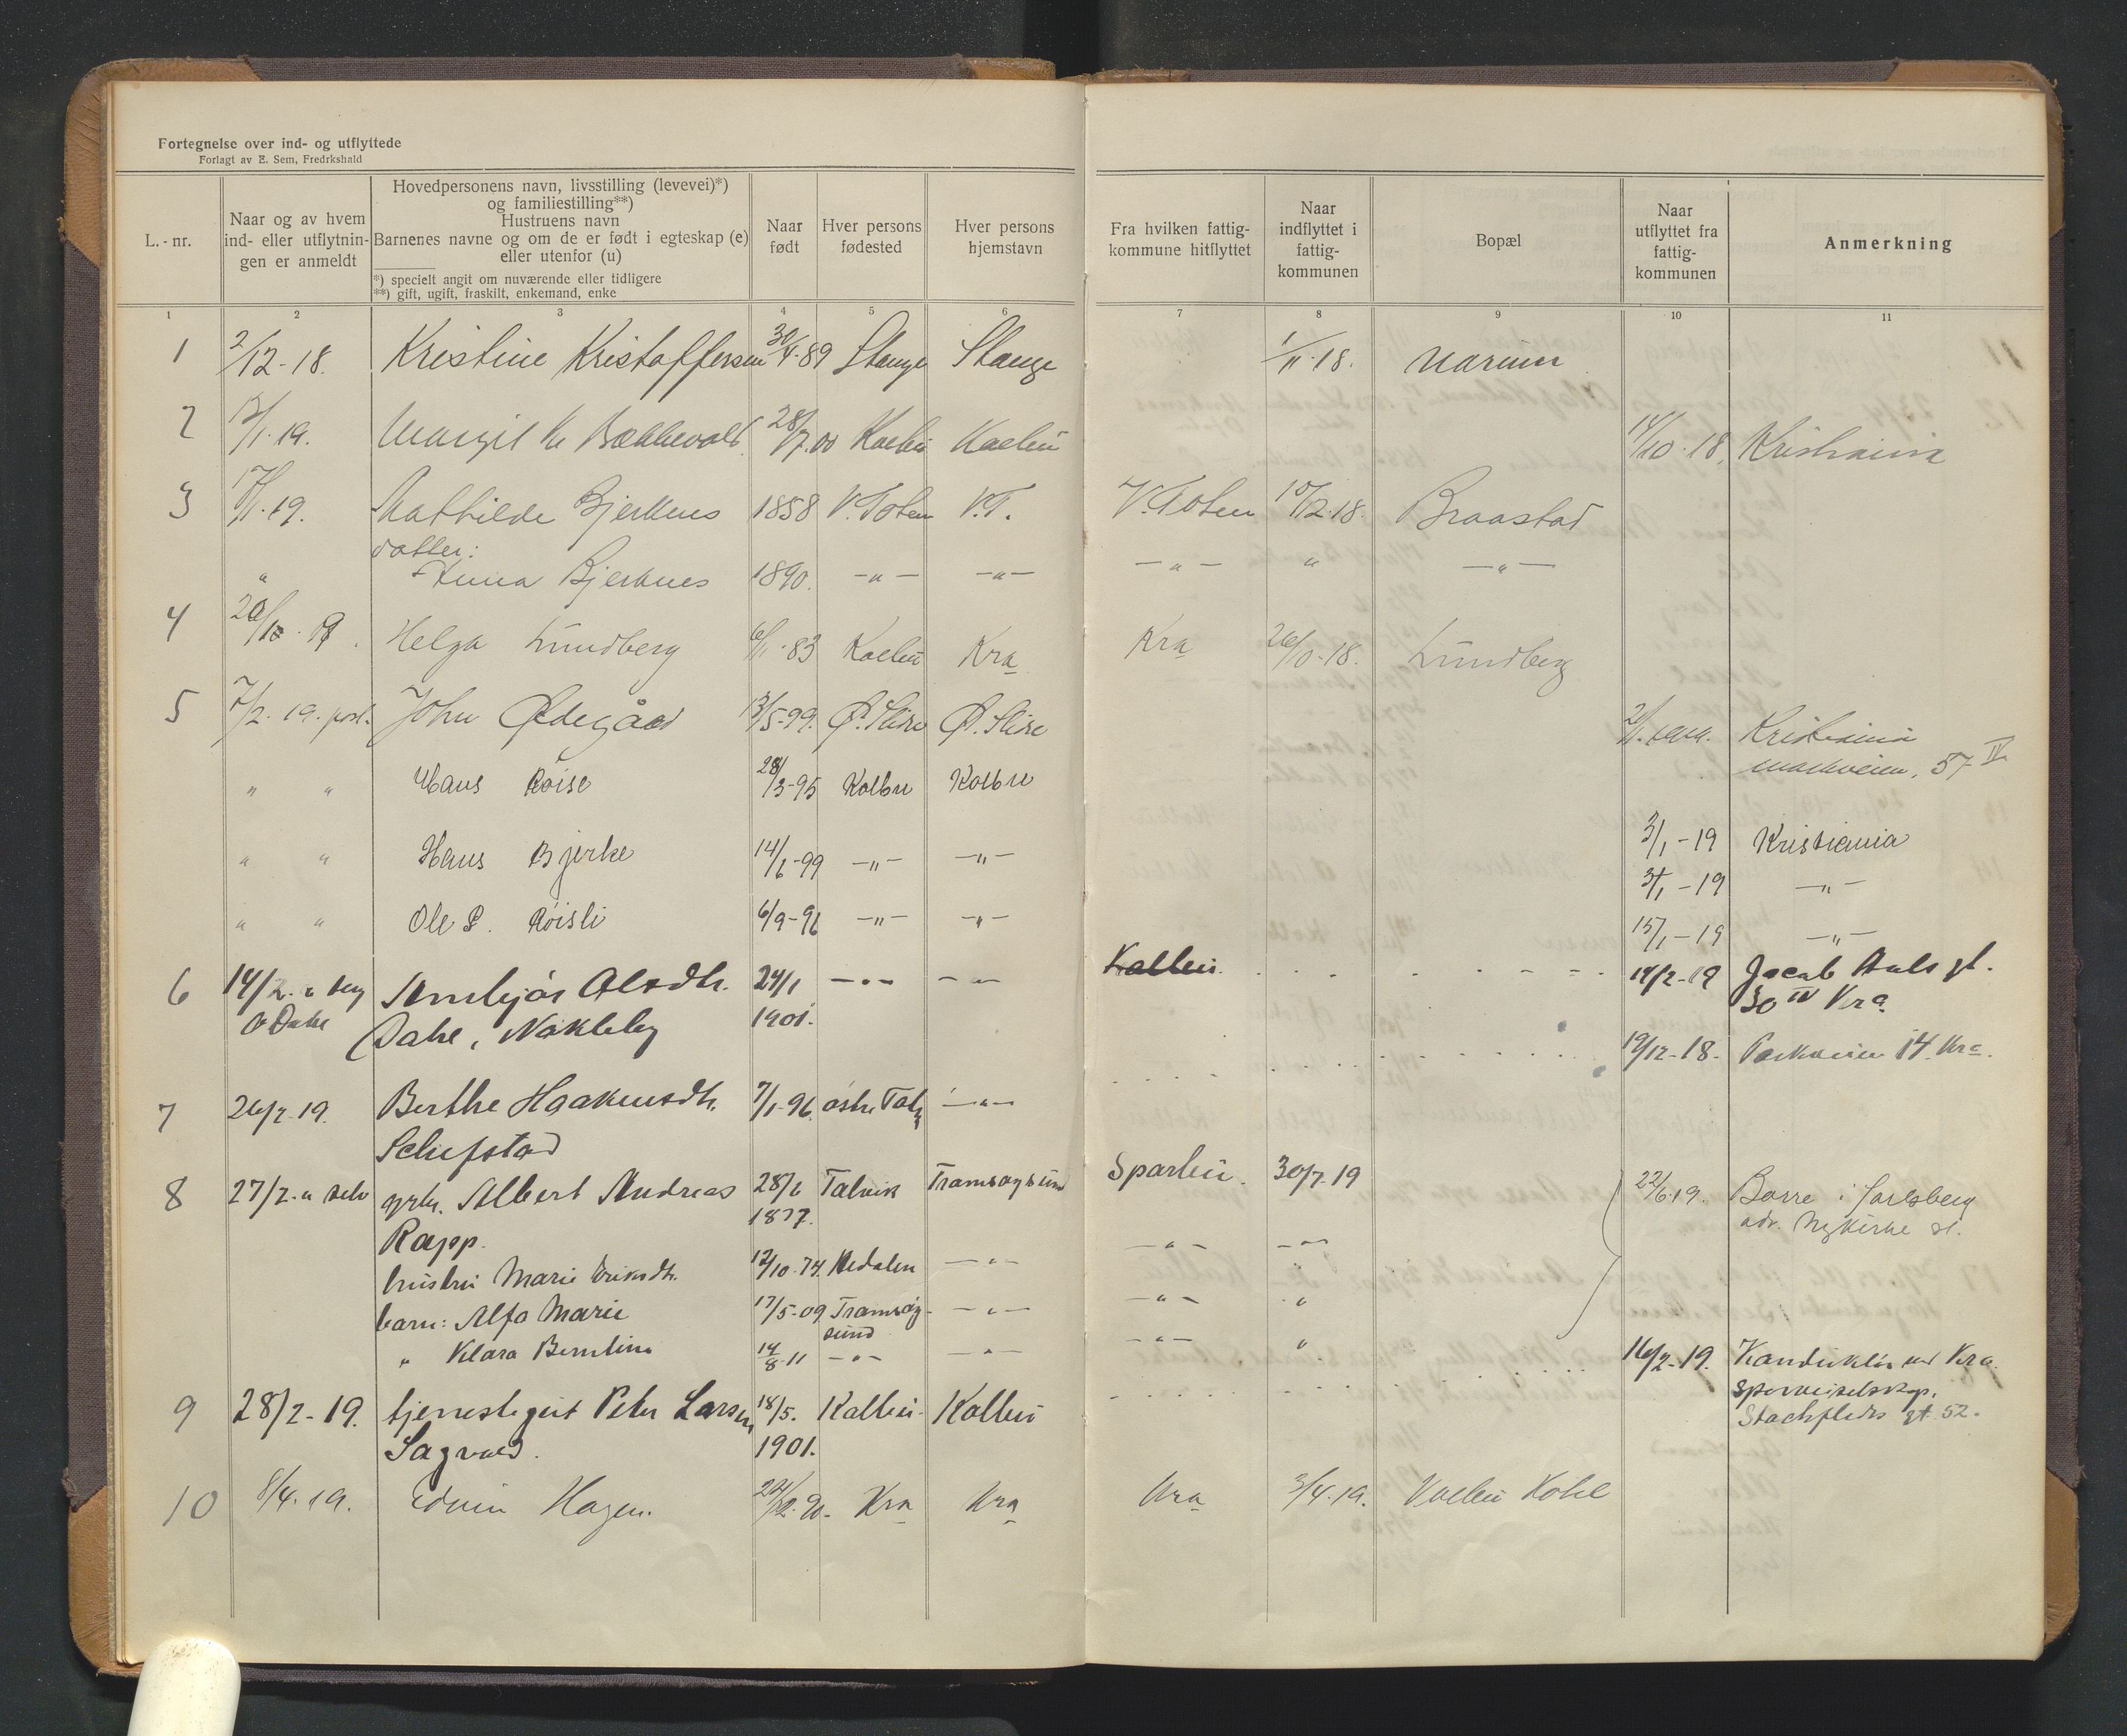 Fortegnelse over ind- og utflyttede
Forlagt av E. Sem, Fredrkshald
L.-nr.
Naar og av hvem
ind- eller utflytnin-
gen er anmeldt
Hovedpersonens navn, livsstilling (levevei)*)
og familiestilling**)
Hustruens navn
Barnenes navne og om de er født i egteskap (e)
eller utenfor (u)
*) specielt angit om nuværende eller tidligere
**) gift, ugift, fraskilt, enkemand, enke
Naar
født
Hver persons
fødested
Hver persons
hjemstavn
Fra hvilken fattig-
kommune hitflyttet
Naar
indflyttet i
fattig-
kommunen
Bopæl
Naar
utflyttet fra
fattig-
kommunen
Anmerkning
1 2 3 4 5 6 7 8 9 10 11
1 2/12-18. Kristine Kristoffersen 30/4-89 Stange Stange 1/11-18.
2 13/1.19. Margit 28/7.00 Kolbu Kolbu 14/10.18. Kristiania
3 17/1.19. Mathilde Bjerknes 1858 V. Toten V.T. V. Toten 10/12.18. Braastad
datter:
" Anna Bjerknes 1890. —"— —"— —"— " —"—
4 Helga Lundberg 6/1.83 Kolbu Kra Kra 26/10-18. Lundberg
5 7/2.19. post. John Ødegård 13/5-99. Ø. Slire Ø. Slire Kristiania
57 IV
" " Hans Røise 28/3-95 Kolbu Kolbu
" " Hans Bjerke 14/6-99 —"— —"— 3/1-19 Kristiania
31/1-19 —"—
" " Ole P. Røisli 6/9-96 —"— —"— 15/1-19 —"—
6 14/2. Olsdtr. 24/1 —"— —"— Kolbu. Jacob Aals gt.
O Dahe Dahe, Nøkleby 1901. 30 IV Kra.
19/12-18. Parkveien 14. Kra.
7 26/2.19. Berthe Haakensdtr. 7/1-96. østre Toten —"—
8 27/2. a selv Albert Andreas 28/6 Talvik Tromsøysund Sparbu. 30/7.19 22/6.19. Borre i Jarlsberg
Rapp. 1877. adr. Nykirke st.
hustru Marie Eriksdtr. 12/10.74. Hedalen —"— —"— —"—
barn: Alfa Marie 17/5-09 Tromsøy- —"— —"— "
sund
" Klara 14/8.11 —"— —"— —"— "
16/2.19. Konduktør ved Kra.
9 28/2-19. tjenestegut Peter Larsen 18/5. Kolbu. Kolbu Sporveiselskap.
Sagvold. 1901. gt. 52.
10 8/4.19. Edvin Hagen. Kra Kra Kra 3/4.19. Kolbu